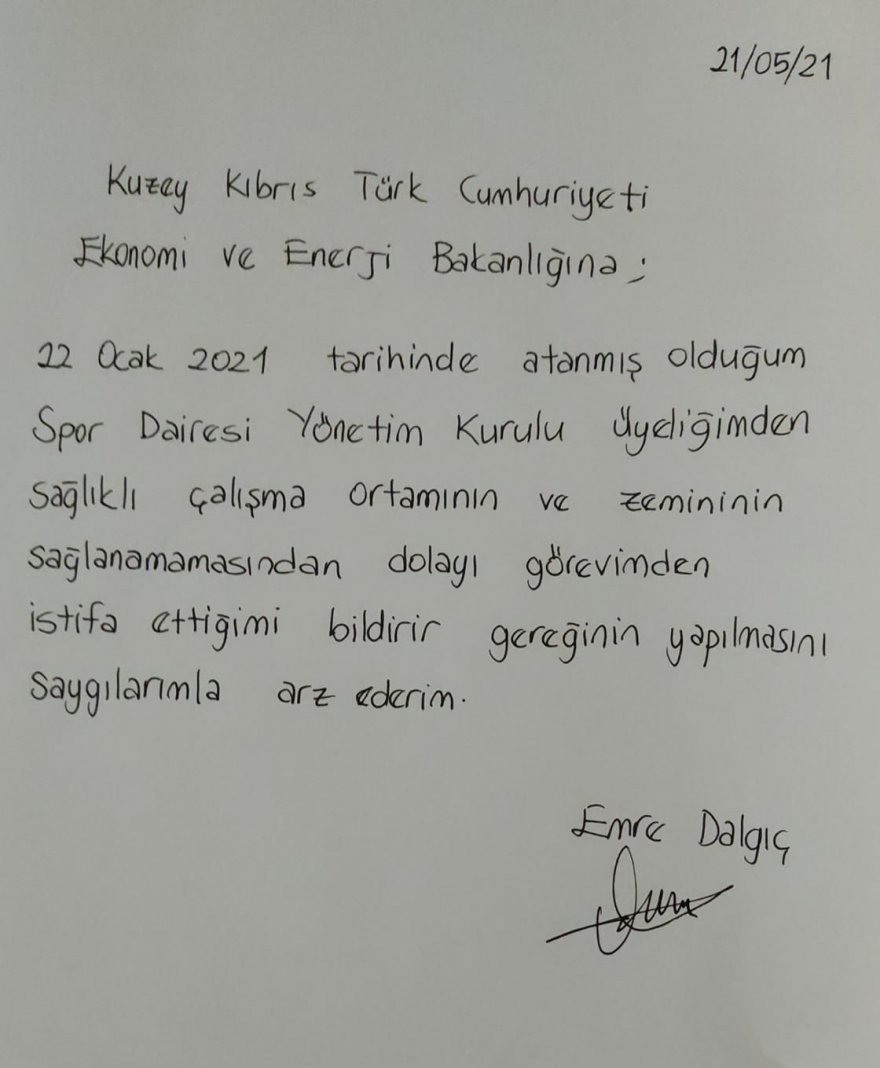 21/05/21
Kuzey Kıbrıs Türk Cumhuriyeti
Ekonomi ve Enerji Bakanlığına;
22 Ocak 2021 tarihinde atanmış olduğum
Spor Dairesi Yönetim Kurulu Üyeliğimden
sağlıklı çalışma ortamının ve zemininin
sağlanamamasından dolayı görevimden
istifa ettiğimi bildirir gereğinin yapılmasını
saygılarımla arz ederim.
Emre Dalgıç